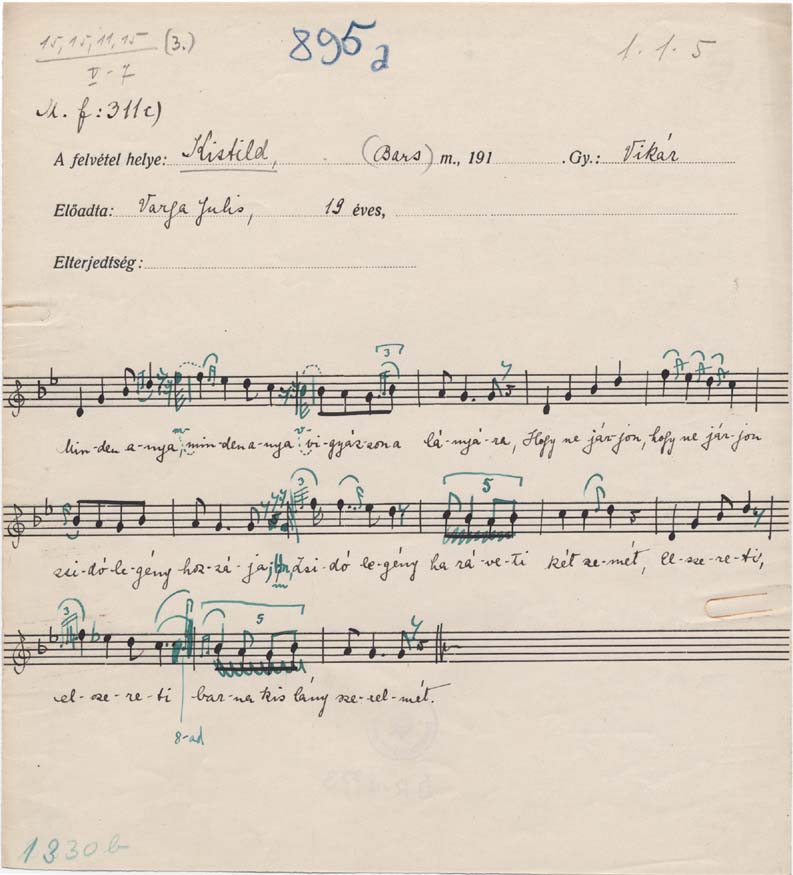 15, 15, 11, 15 (3.) 895a 1. 1. 5
V - 7
M. f: 311c)
A felvétel helye: Kistild, (Bars) m., 191 . Gy.: Vikár
Előadta: Varga Julis, 19 éves,
Elterjedtség:
3
m v
Min-den a-nya, min-den a-nya vi-gyáz-zon a lá-nyá-ra, Hogy ne jár-jon, hogy ne jár-jon
3 5
zsi-dó-le-gény hoz-zá-ja, Zsi-dó le-gény ha rá-ve-ti két sze-mét, el-sze-re-ti,
m
3 5
el-sze-re-ti bar-na kis lány sze-rel-mét.
8-ad
1330b